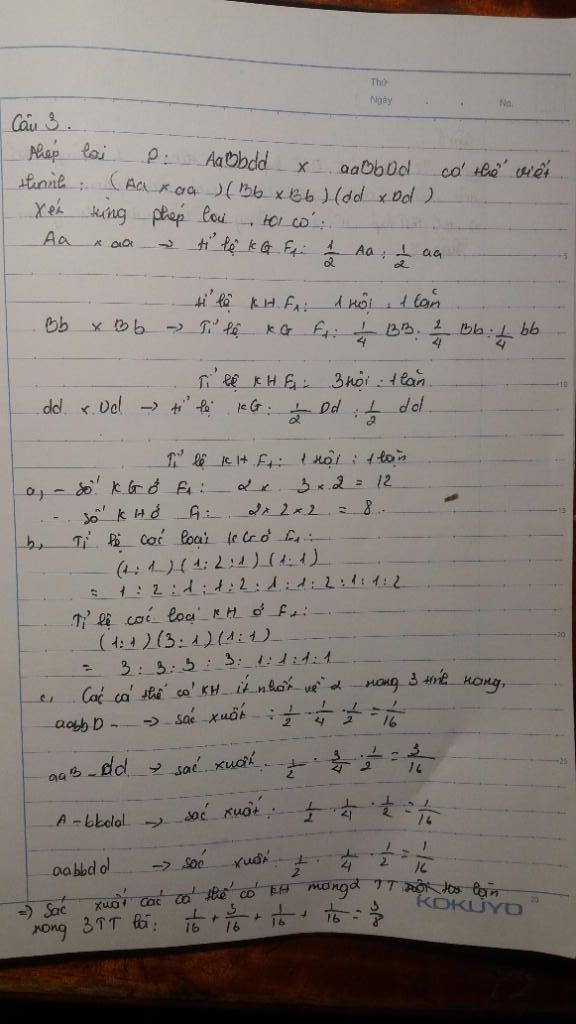 Thứ
Ngày . . No.
Câu 3.
Phép lai P: AaBbdd x aaBbDd có thể viết
thành: (Aa x aa)(Bb x Bb)(dd x Dd)
Xét từng phép lai, ta có:
Aa x aa → tỉ lệ KG F1: 1/2 Aa : 1/2 aa
tỉ lệ KH F1: 1 trội : 1 lặn
Bb x Bb → Tỉ lệ KG F1: 1/4 BB : 2/4 Bb : 1/4 bb
Tỉ lệ KH F1: 3 trội : 1 lặn
dd x Dd → tỉ lệ KG: 1/2 Dd : 1/2 dd
Tỉ lệ KH F1: 1 trội : 1 lặn
a, - Số KG ở F1: 2 x 3 x 2 = 12
- Số KH ở F1: 2 x 2 x 2 = 8.
b, Tỉ lệ các loại KG ở F1:
(1:1)(1:2:1)(1:1)
= 1:2:1:1:2:1:1:2:1:1:2
Tỉ lệ các loại KH ở F1:
(1:1)(3:1)(1:1)
= 3:3:3:3:1:1:1:1
c, Các cá thể có KH ít nhất về 2 trong 3 tính trạng.
aabbD- → sác xuất: 1/2 . 1/4 . 1/2 = 1/16
aaB-dd → sác xuất: 1/2 . 3/4 . 1/2 = 3/16
A-bbdd → sác xuất: 1/2 . 1/4 . 1/2 = 1/16
aabbdd → sác xuất: 1/2 . 1/4 . 1/2 = 1/16
⇒ Sác xuất các cá thể có KH mang 2 TT lặn
trong 3TT là: 1/16 + 3/16 + 1/16 + 1/16 = 3/8
KOKUYO
5
10
15
20
25